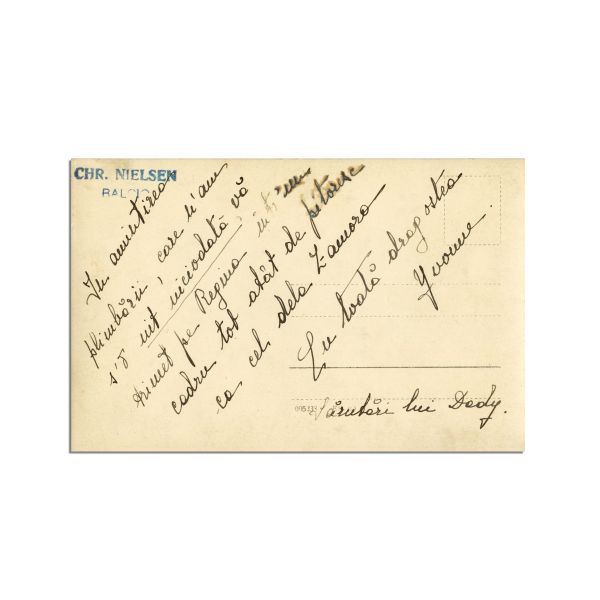 CHR. NIELSEN
BALCIC
In amintirea
plimbării, care n'am
s'o uit niciodată, vă
trimet pe Regina într'un
cadru tot atât de pitoresc
ca cel dela Zamora
Cu toată dragostea
Yvonne.
Sărutări lui Dody.